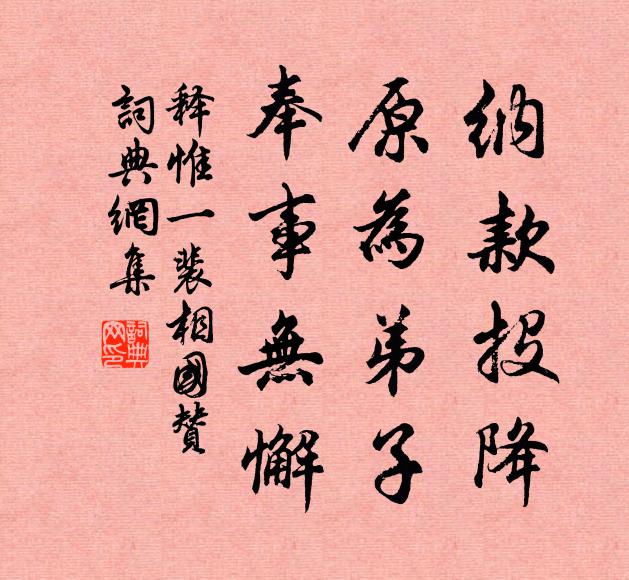 納款投降
原為弟子
奉事無懈
释惟一裴相國贊
詞典網集
詞典網印